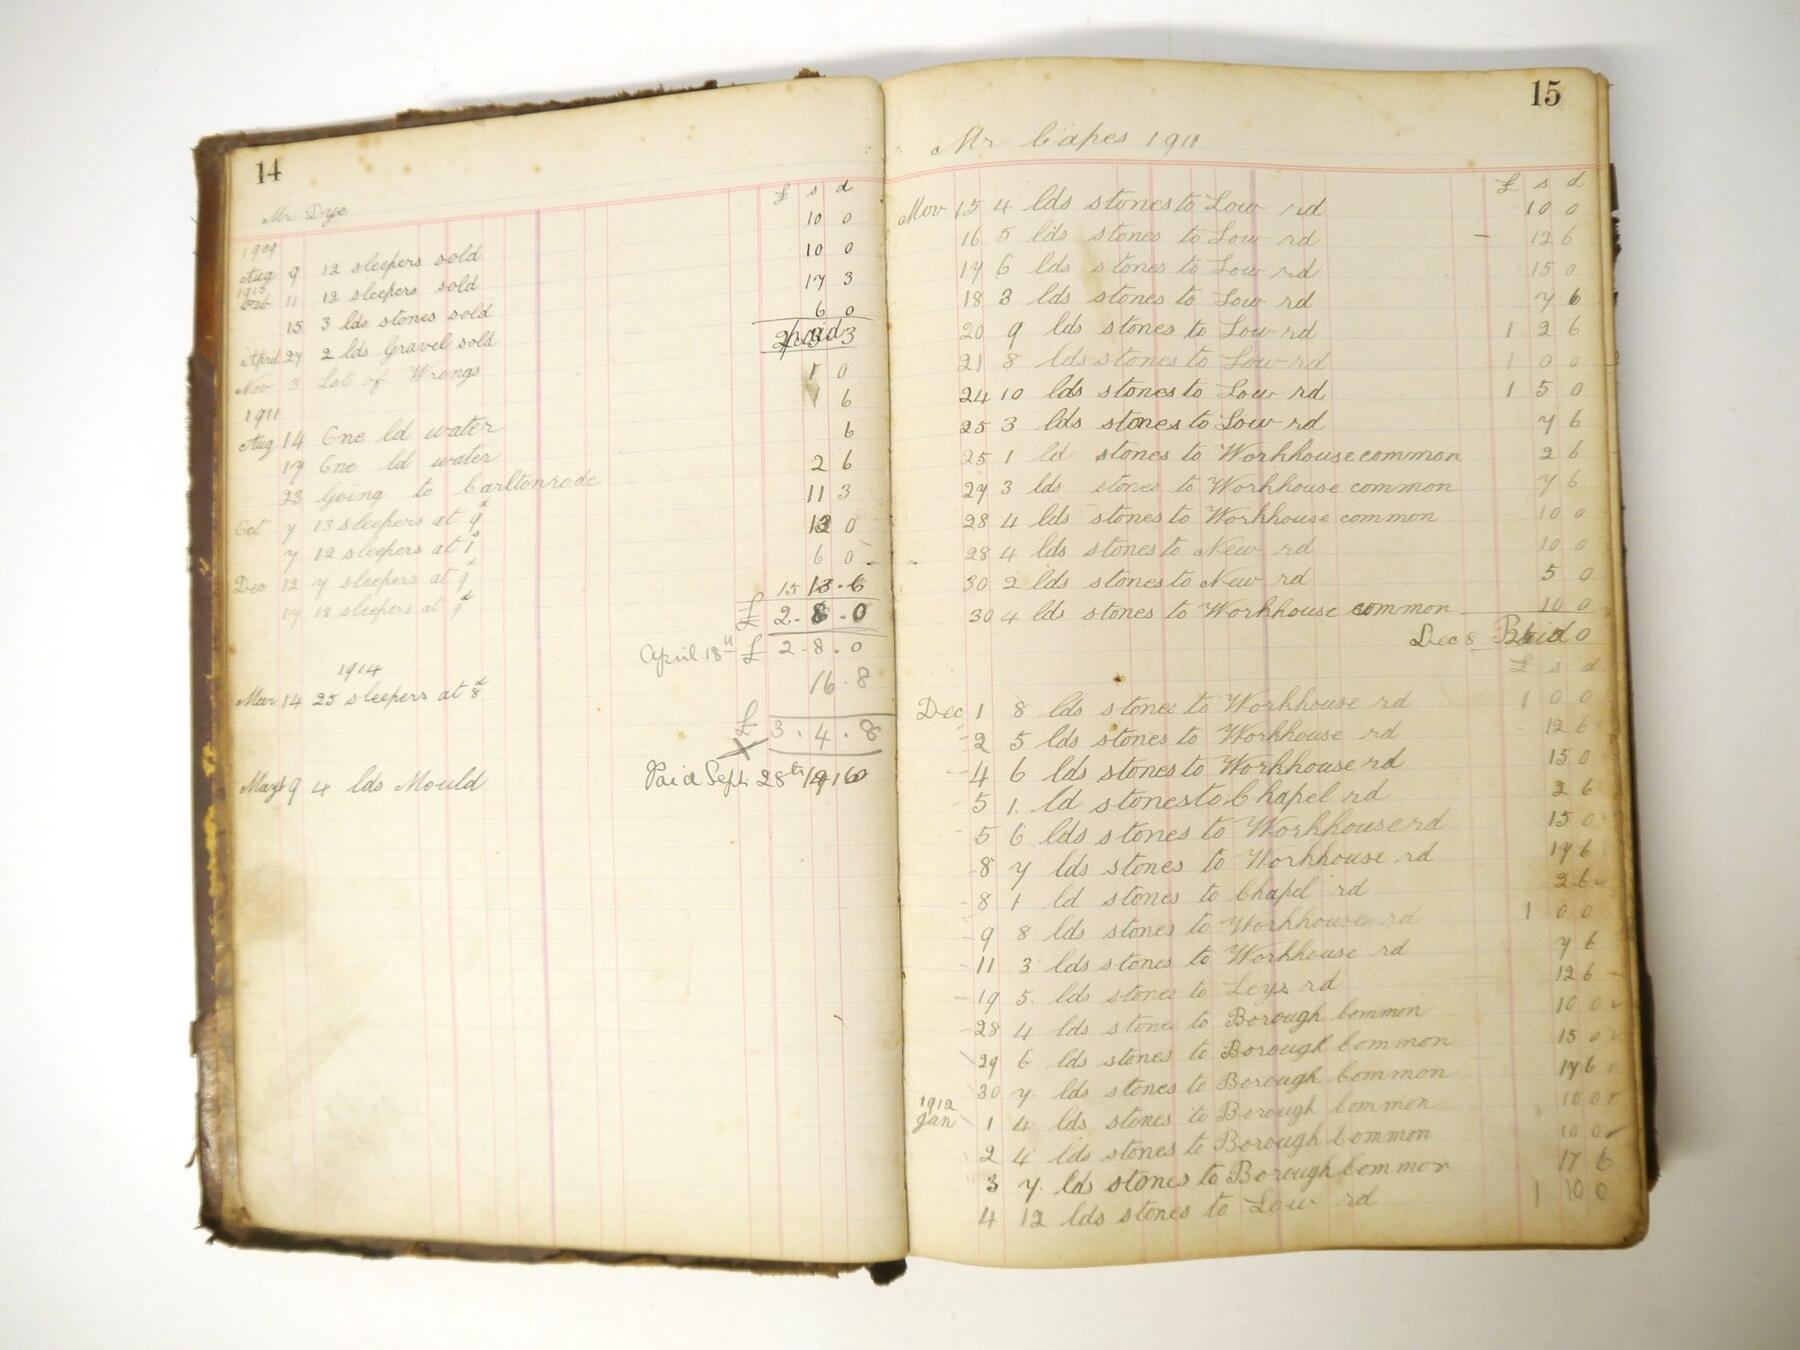 14
Mr Dye
£ s d
1909
Aug 9 12 sleepers sold 10 0
1910
Feb 11 12 sleepers sold 10 0
15 3 lds stones sold 17 3
April 27 2 lds Gravel sold 6 0
Nov 3 Lot of Wrongs
paid
1911
Aug 14 One ld water 1 0
17 One ld water 1 6
23 Going to Carltonrode 6
Oct 7 13 sleepers at 9d 2 6
7 12 sleepers at 1s 11 3
Dec 12 7 sleepers at 9d 12 0
17 18 sleepers at 9d 6 0
15 13.6
£ 2.8.0
April 18th £ 2.8.0
1914
Mar 14 25 sleepers at 8d 16.8
£ 3.4.8
X
May 19 4 lds Mould Paid Sept 28th 1916
15
Mr Capes 1911
£ s d
Nov 15 4 lds stones to Low rd 10 0
16 5 lds stones to Low rd 12 6
17 6 lds stones to Low rd 15 0
18 3 lds stones to Low rd 7 6
20 9 lds stones to Low rd 1 2 6
21 8 lds stones to Low rd 1 0 0
24 10 lds stones to Low rd 1 5 0
25 3 lds stones to Low rd 7 6
25 1 ld stones to Workhouse common 2 6
27 3 lds stones to Workhouse common 7 6
28 4 lds stones to Workhouse common 10 0
28 4 lds stones to New rd 10 0
30 2 lds stones to New rd 5 0
30 4 lds stones to Workhouse common 10 0
Dec 8 Paid
£ s d
Dec 1 8 lds stones to Workhouse rd 1 0 0
2 5 lds stones to Workhouse rd 12 6
4 6 lds stones to Workhouse rd 15 0
5 1 ld stones to Chapel rd 2 6
5 6 lds stones to Workhouse rd 15 0
8 7 lds stones to Workhouse rd 17 6
8 1 ld stones to Chapel rd 2 6
9 8 lds stones to Workhouse rd 1 0 0
11 3 lds stones to Workhouse rd 7 6
19 5 lds stones to Leys rd 12 6
28 4 lds stones to Borough Common 10 0
29 6 lds stones to Borough Common 15 0
30 7 lds stones to Borough Common 17 6
1912
Jan 1 4 lds stones to Borough Common 10 0
2 4 lds stones to Borough Common 10 0
3 7 lds stones to Borough Common 17 6
4 12 lds stones to Low rd 1 10 0